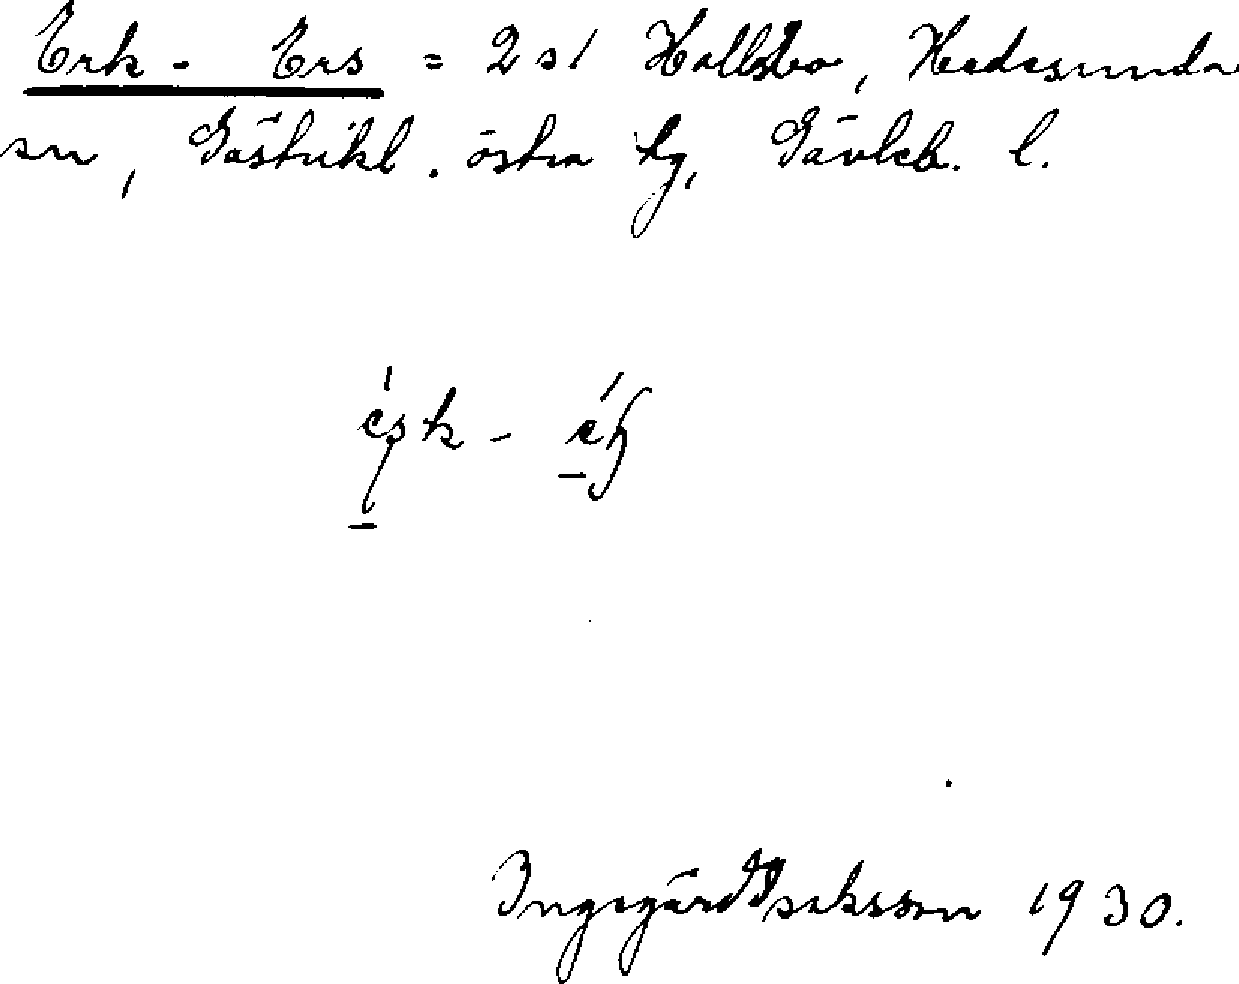 Erk - Ers = 2 s1 Hallsbo, Hedesunda
sn, Gästrikl. östra tg, Gävleb. l.
Ingegärd Isaksson 1930.